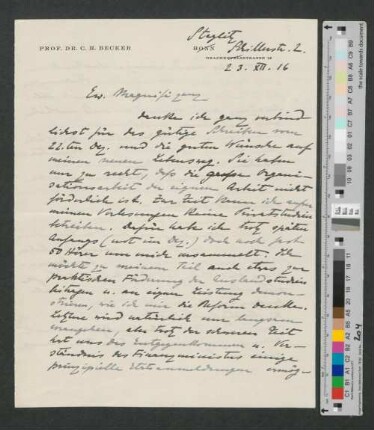 PROF. DR. C. H. BECKER
Steglitz
BONN Schillerstr. 2.
23. XII. 16
Ew. Magnifizenz
danke ich ganz verbind
lichst für das gütige Schreiben vom
22.ten Dez. und die guten Wünsche auf
meinen neuen Lebensweg. Sie haben
nur zu recht, daß die große Organi-
sationsarbeit der eigenen Arbeit nicht
förderlich ist. Zur Zeit kann ich außer
meinen Vorlesungen keine Privatstudien
treiben. Dafür habe ich trotz späten
Anfangs (erst im Dez.) doch noch fast
50 Hörer um mich versammelt. Ich
möchte zu meinem Teil auch etwas zur
praktischen Förderung der Auslandsstudien
beitragen u. am eigenen
wie ich mir die Reform denke.
Letztere wird natürlich nur langsam
vorangehen, aber trotz der schweren Zeit
hat uns das Entgegenkommen u. Ver-
ständnis des Finanzministers einige
prinzipielle Etatsanmeldungen ermög-
204